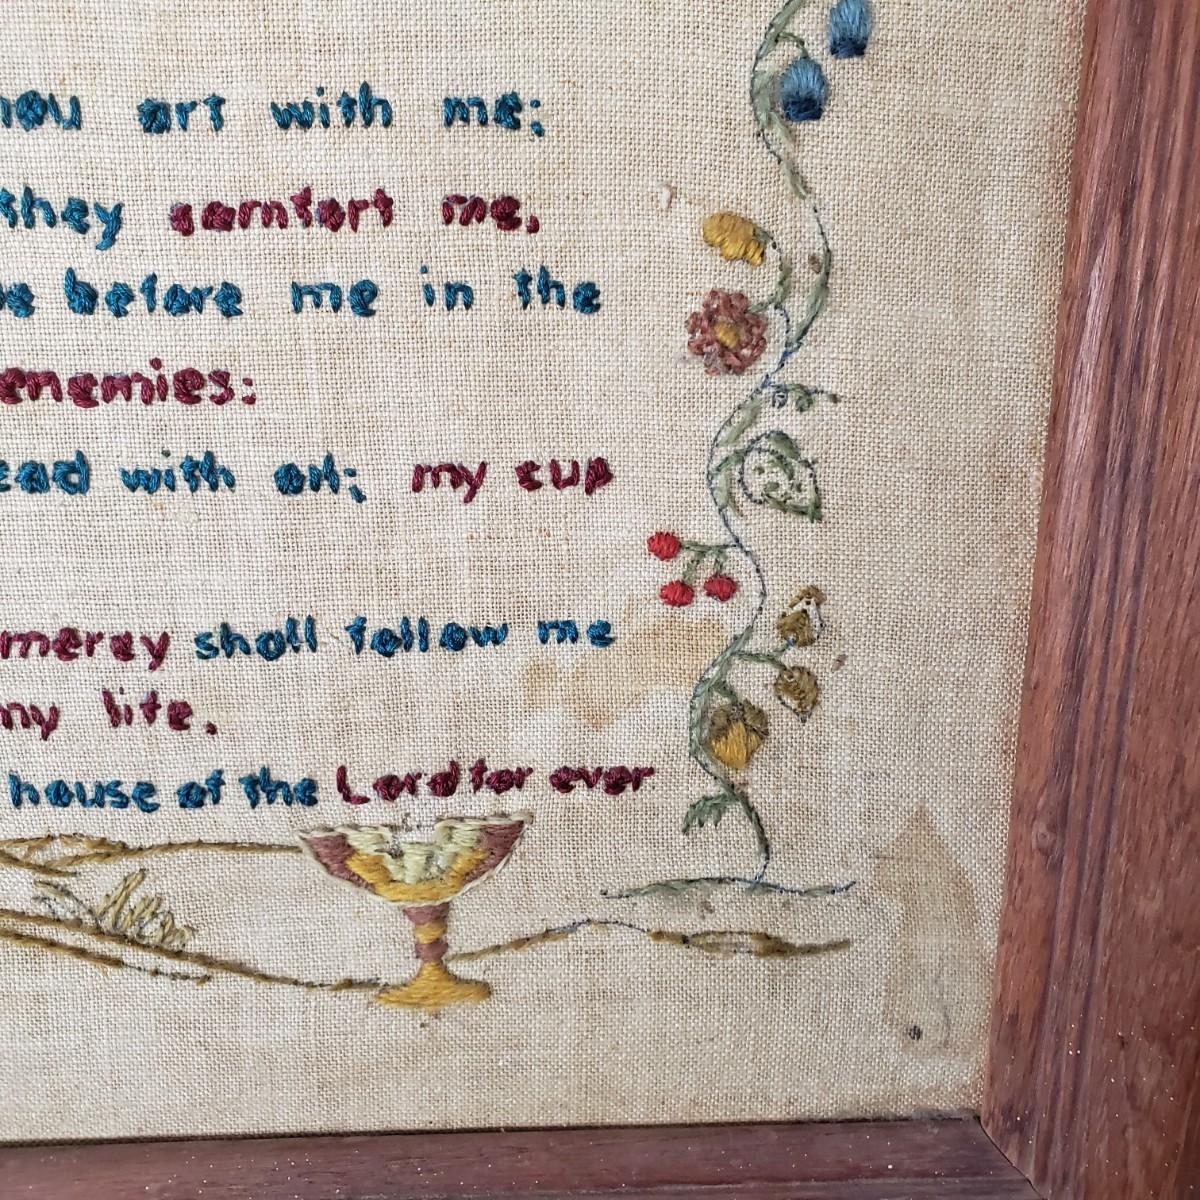 hou art with me;
they comfort me.
be before me in the
enemies:
ead with oil; my cup
mercy shall follow me
my life.
house of the Lord for ever